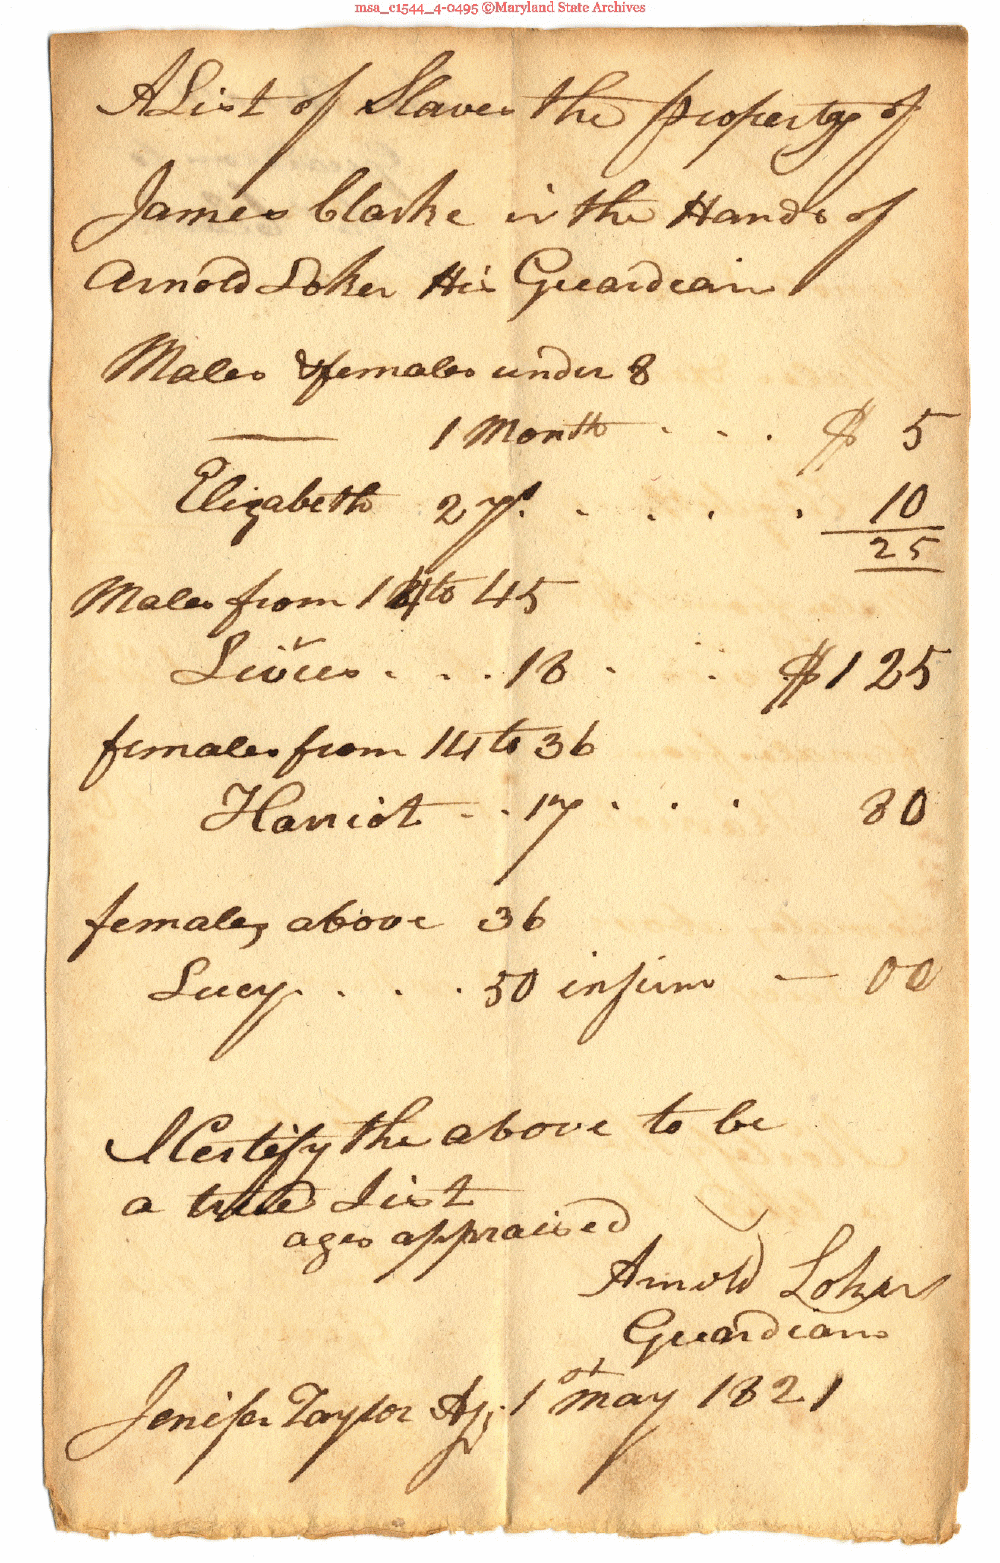 msa_c1544_4-0495 ©Maryland State Archives
A List of Slaves the property of
James Clarke in the Hands of
Arnold Loker His Guardian
Males & females under 8
— 1 Month . . . $ 5
Elizabeth 2 yr. . . . . 10
25
Males from 14 to 45
. . . 18 . . $125
females from 14 to 36
Harriot . . 17 . . . 80
females above 36
Lucy . . . . 50 infirm — 00
I Certify the above to be
a true List
ages appraised
Arnold Loker
Guardian
Jenifer Taylor 1st May 1821